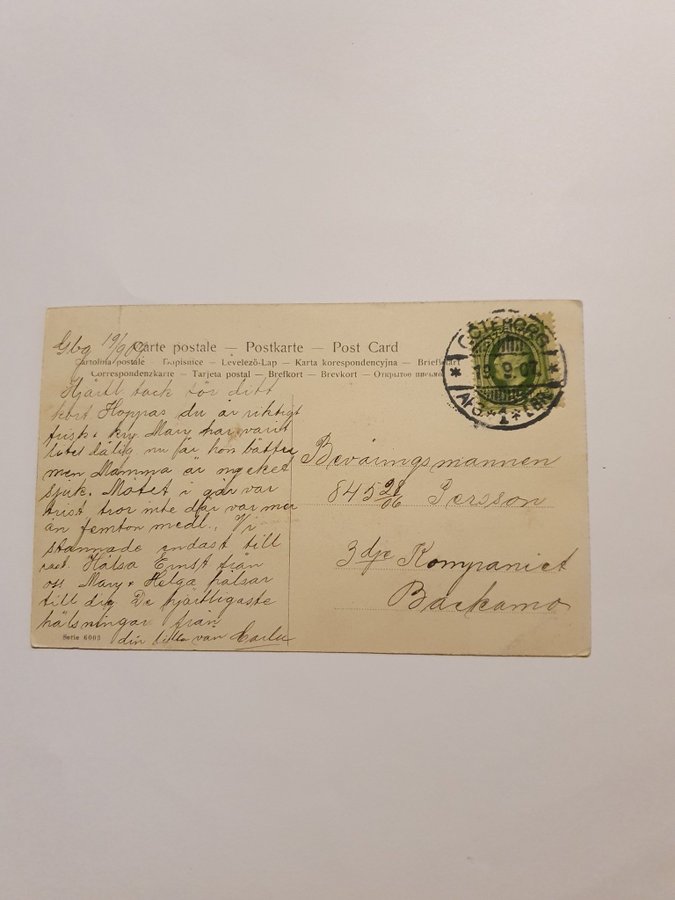 Gbg 19/9 07
Carte postale — Postkarte — Post Card
Cartolina postale — Dopisnice — Levelező-Lap — Karta korespondencyjna — Briefkaart
Correspondenzkarte — Tarjeta postal — Brefkort — Brevkort — Открытое письмо
Hjärtl tack för ditt
kort Hoppas du är riktigt
frisk & kry Mary har varit
litet dålig nu får hon bättre
men Mamma är mycket
sjuk. Mötet i går var
trist tror inte där var mer
än femton medl., Vi
stannade endast till
Hälsa Ernst från
oss Mary & Helga hälsar
till dig De hjärtligaste
hälsningar från
din lilla vän
Serie 6003
GÖTEBORG
19. 9. 07.
Beväringsmannen
845 28/06 Persson
3dje Kompaniet
Backamo